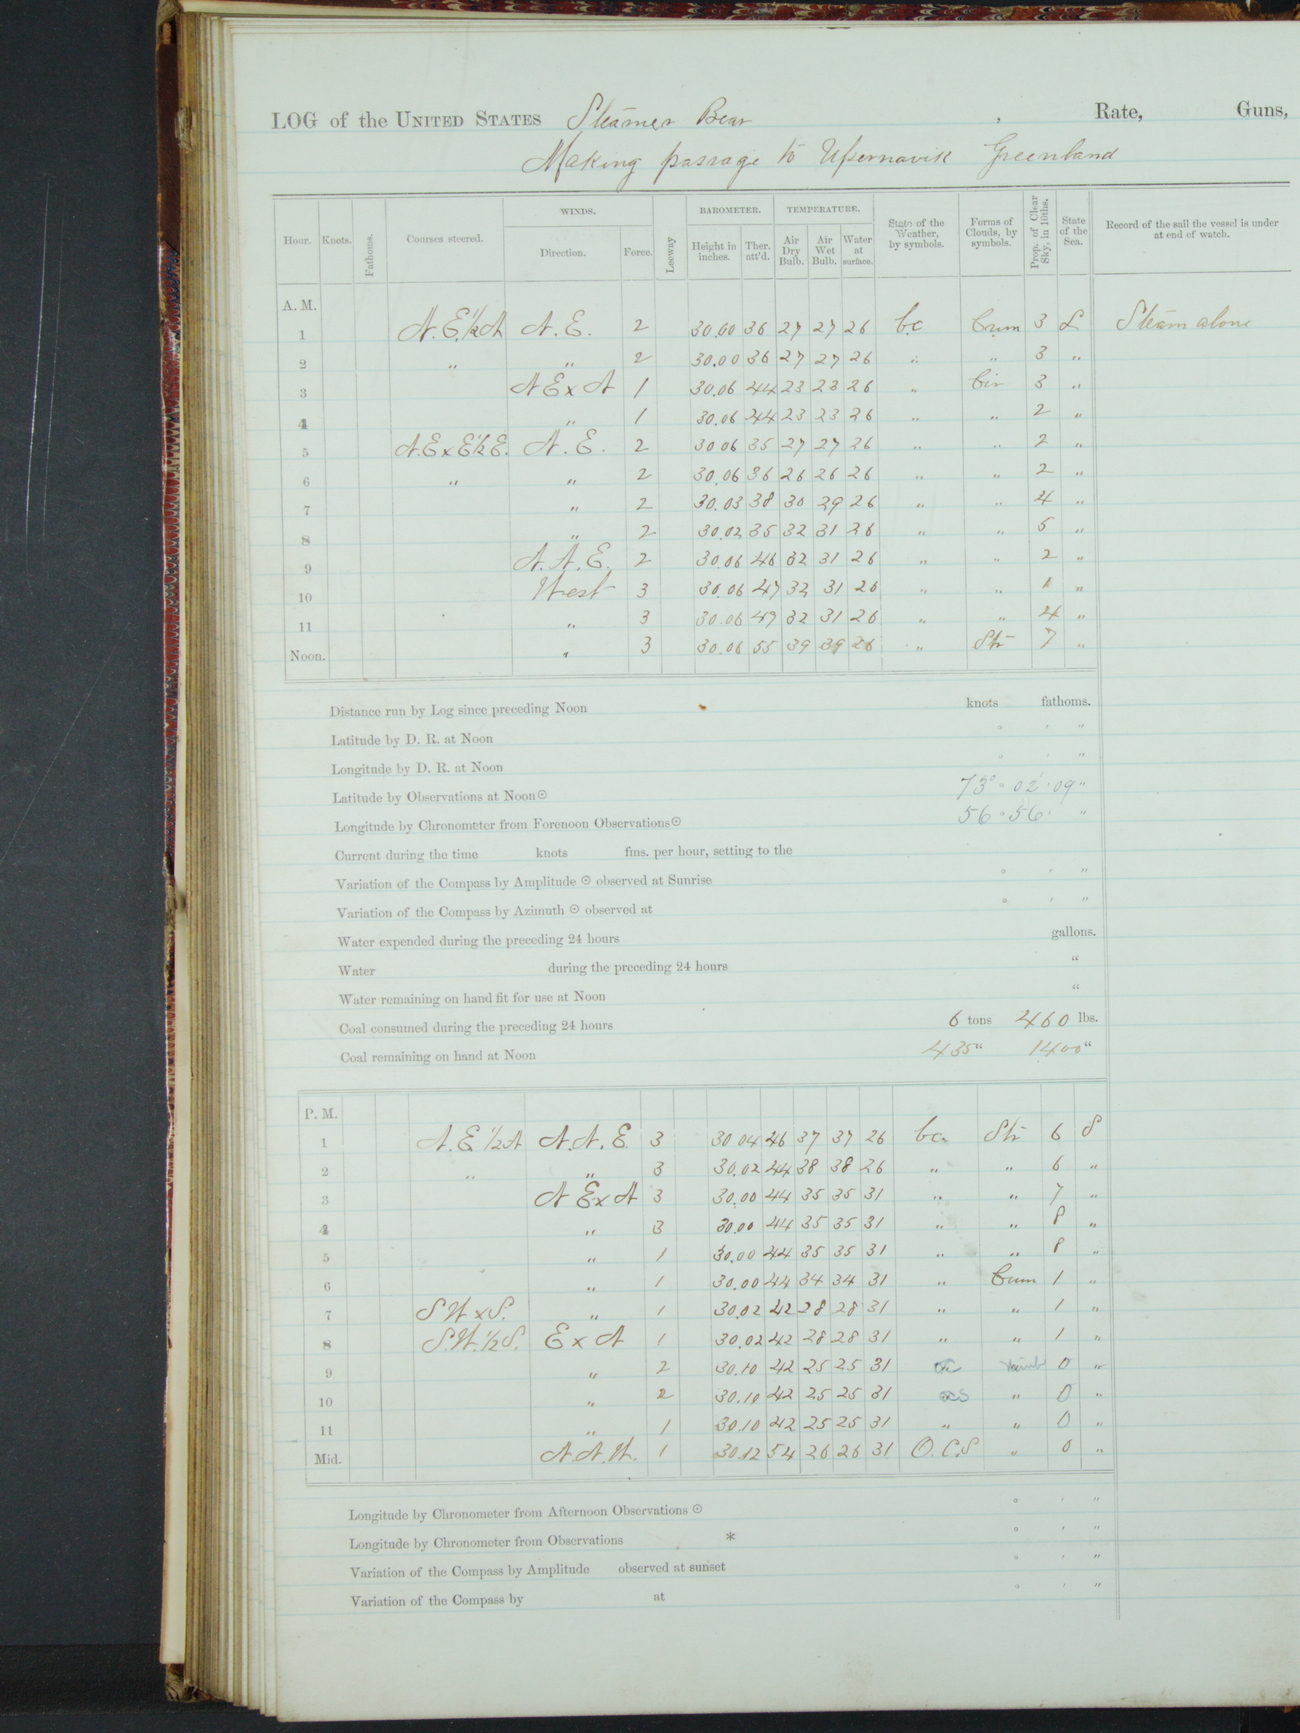 LOG of the UNITED STATES Steamer Bear , Rate, Guns,
Making passage to Upernavik Greenland
Hour. Knots. Fathoms. Courses steered. WINDS. Direction. Force. Leeway BAROMETER. Height in inches. Ther. att'd. TEMPERATURE. Air Dry Bulb. Air Wet Bulb. Water at surface. State of the Weather, by symbols. Forms of Clouds, by symbols. Prop. of Clear Sky, in 10ths. State of the Sea. Record of the sail the vessel is under at end of watch.
A. M.
1 N.E.½N N.E. 2 30.00 36 27 27 26 bc Cum 3 S Steam alone
2 " " 2 30.00 36 27 27 26 " " 3 "
3 NExN 1 30.06 44 23 23 26 " Cir 3 "
4 " 1 30.06 44 23 23 26 " " 2 "
5 N.ExE½E. N.E. 2 30 06 35 27 27 26 " " 2 "
6 " " 2 30.06 36 26 26 26 " " 2 "
7 " 2 30.03 38 30 29 26 " " 4 "
8 " 2 30.02 35 32 31 26 " " 5 "
9 N.N.E. 2 30.06 46 32 31 26 " " 2 "
10 West 3 30.06 47 32 31 26 " " "
11 " 3 30.06 49 32 31 26 " " 4 "
Noon. " 3 30.06 55 39 39 26 " Str 7 "
Distance run by Log since preceding Noon knots fathoms.
Latitude by D. R. at Noon ° ' "
Longitude by D. R. at Noon ° ' "
Latitude by Observations at Noon ☉ 73° 02' 09"
Longitude by Chronometer from Forenoon Observations ☉ 56° 56' "
Current during the time knots fms. per hour, setting to the
Variation of the Compass by Amplitude ☉ observed at Sunrise ° ' "
Variation of the Compass by Azimuth ☉ observed at ° ' "
Water expended during the preceding 24 hours gallons.
Water during the preceding 24 hours "
Water remaining on hand fit for use at Noon "
Coal consumed during the preceding 24 hours 6 tons 460 lbs.
Coal remaining on hand at Noon 435 " 1400 "
P. M.
1 N.E.½N N.N.E. 3 30 04 46 37 37 26 bc. Str 6 S
2 " " 3 30.02 44 38 38 26 " " 6 "
3 N ExN 3 30.00 44 35 35 31 " " 7 "
4 " 3 30.00 44 35 35 31 " " 8 "
5 " 1 30.00 44 35 35 31 " " 8 "
6 " 1 30.00 44 34 34 31 " Cum 1 "
7 SWxS. " 1 30.02 42 28 28 31 " " 1 "
8 S.W.½S. ExN 1 30.02 42 28 28 31 " " 1 "
9 " 2 30.10 42 25 25 31 oc Nimb 0 "
10 " 2 30.10 42 25 25 31 ocs " 0 "
11 " 1 30.10 42 25 25 31 " " 0 "
Mid. N.N.W. 1 30.12 54 26 26 31 O.C.S " 0 "
Longitude by Chronometer from Afternoon Observations ☉ ° ' "
Longitude by Chronometer from Observations * ° ' "
Variation of the Compass by Amplitude observed at sunset ° ' "
Variation of the Compass by at ° ' "